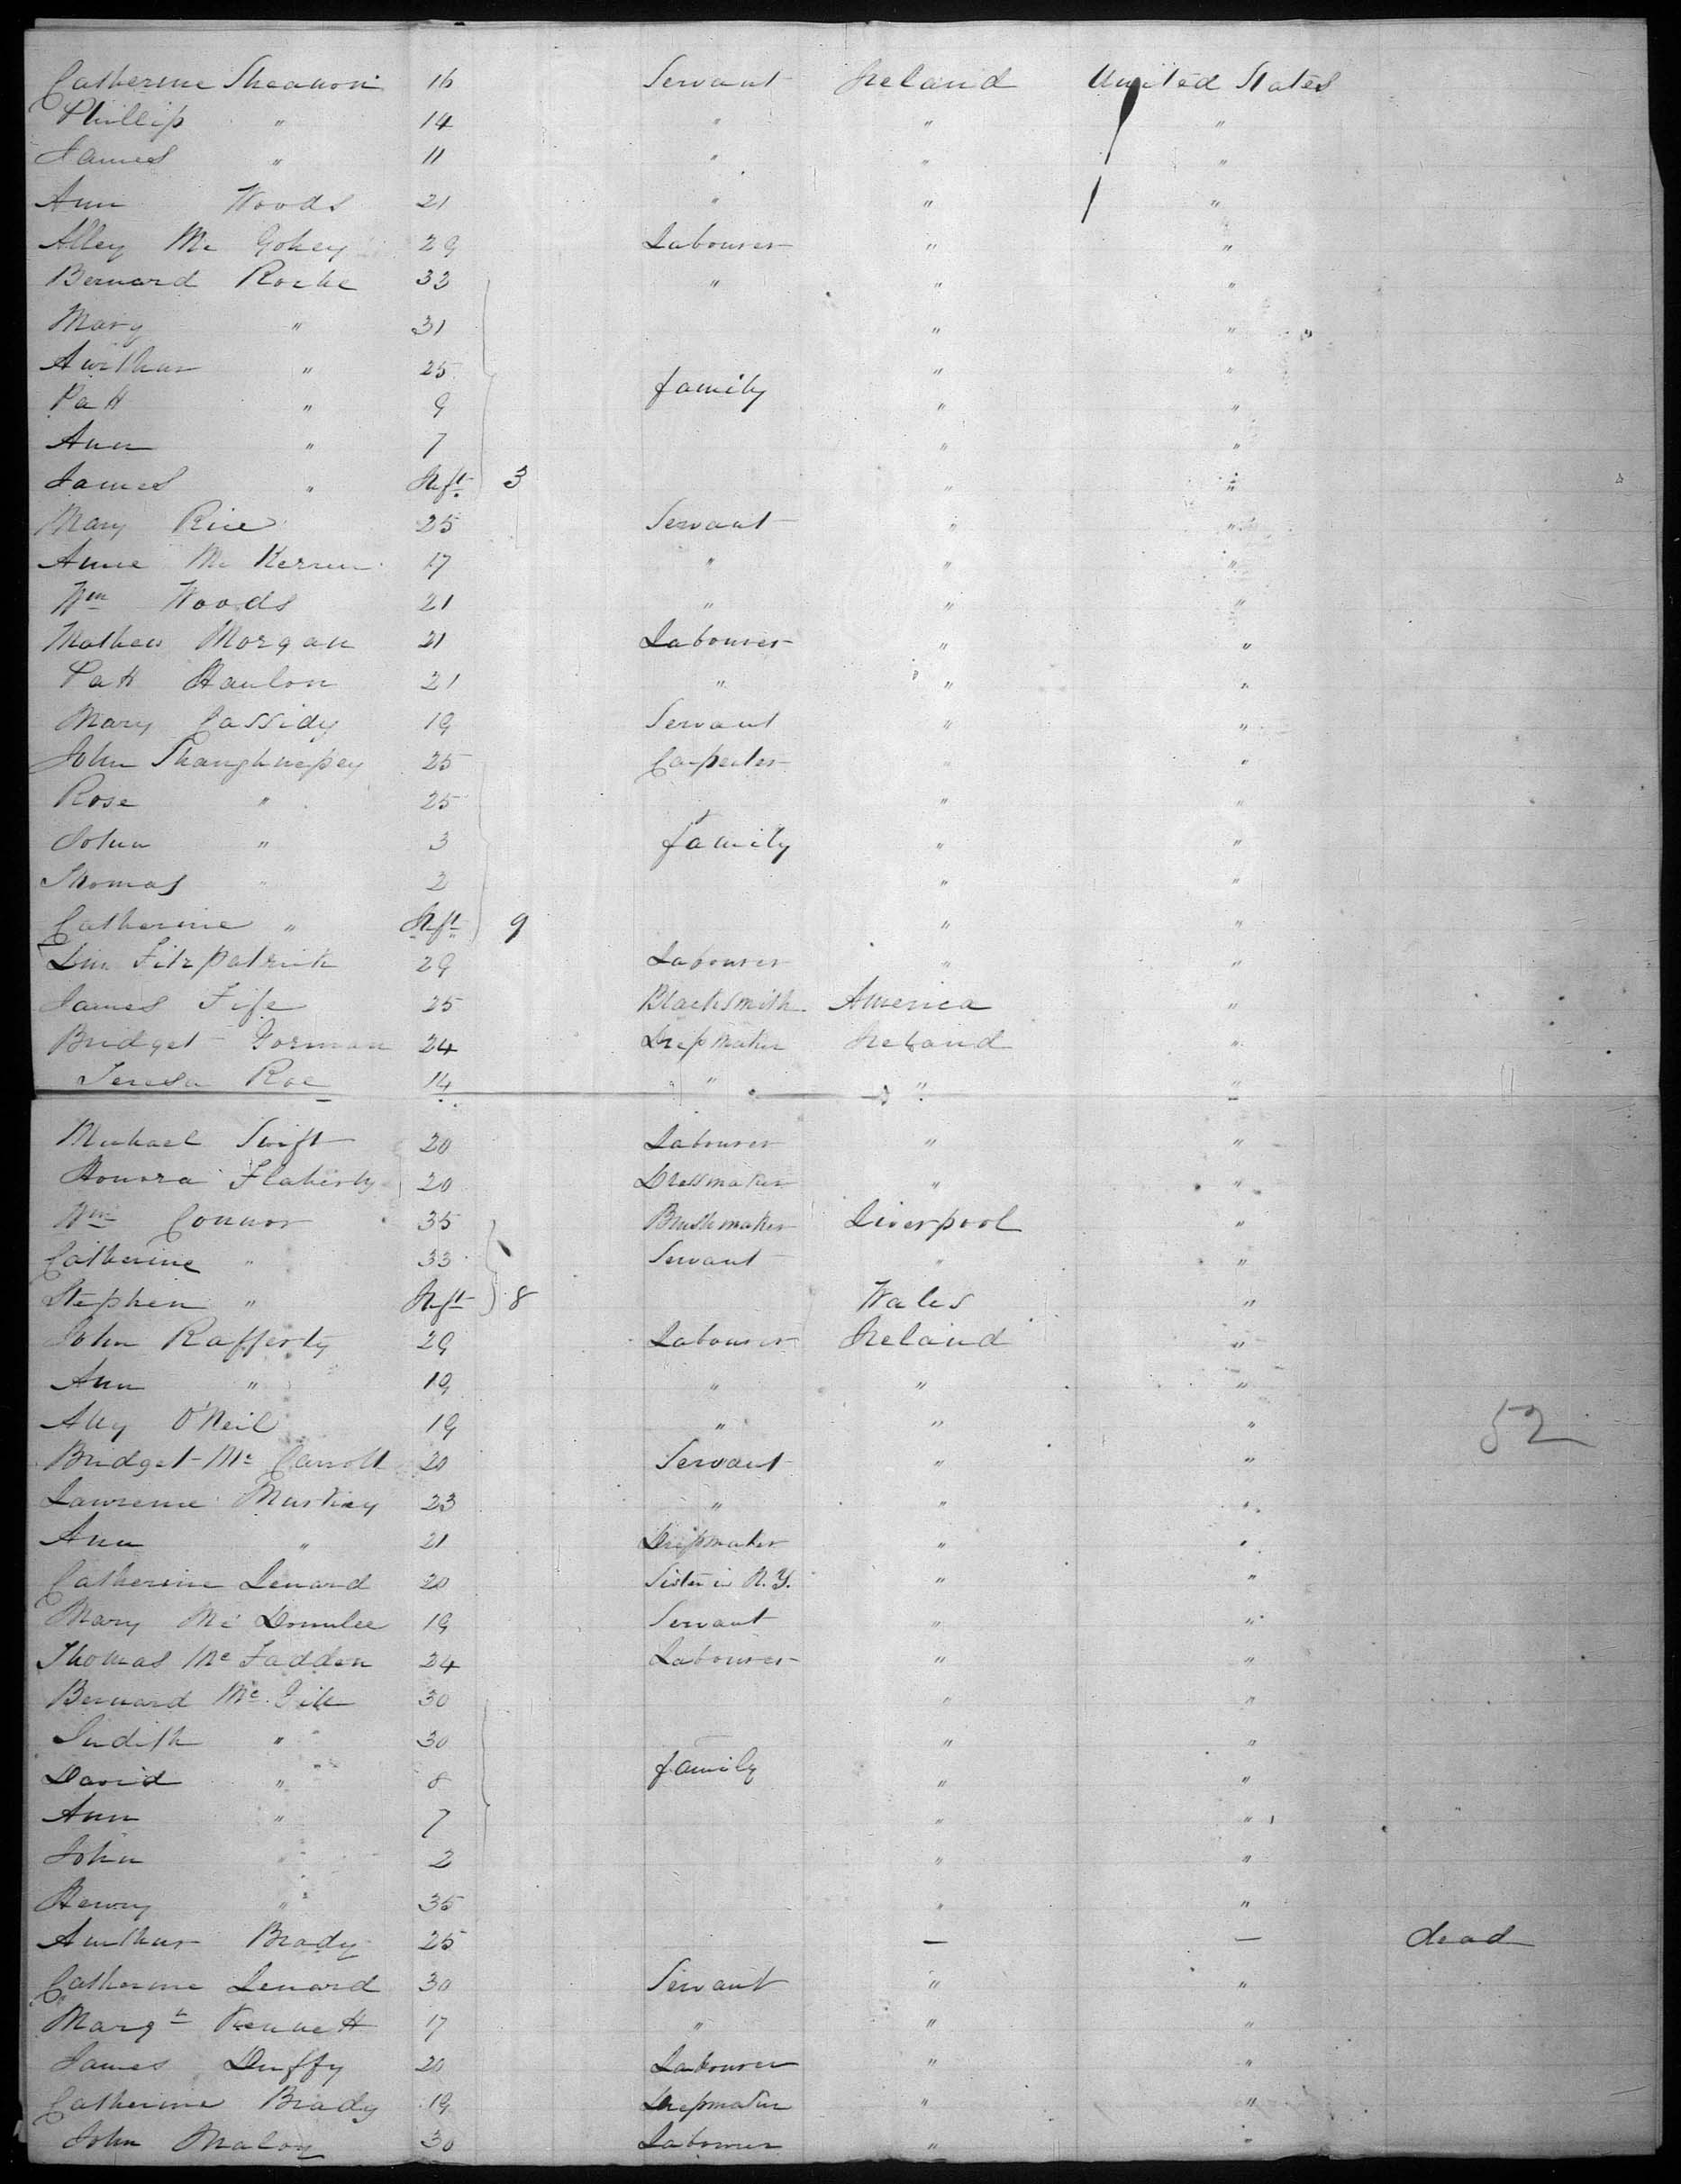 Catherine Sheanon 16 Servant Ireland United States
Phillip " 14 " " "
James " 11 " " "
Ann Woods 21 " " "
Alley Mc Gohey 29 Labourer " "
Bernard Roche 33 " " "
Mary " 31 " "
Aurthur " 25 " "
Patt " 9 family " "
Ann " 7 " "
James " Inft 3 " "
Mary Rice 25 Servant " "
Anne Mc 17 " " "
Wm Woods 21 " " "
Mathew Morgan 21 Labourer " "
Patt Hanlon 21 " " "
Mary Cassidy 19 Servant " "
John Shaughnessy 25 Carpenter " "
Rose " 25 " "
John " 3 family " "
Thomas " 2 " "
Catherine " Inft 9 " "
Fitzpatrick 29 Labourer " "
James Fife 25 Blacksmith America "
Bridget Gorman 24 Dressmaker Ireland "
Teresa Roe 14 " " "
Michael Swift 20 Labourer " "
Honora Flaherty 20 Dressmaker " "
Wm Connor 35 Brushmaker Liverpool "
Catherine " 33 Servant " "
Stephen " Inft 8 Wales "
John Rafferty 29 Labourer Ireland "
Ann " 19 " " "
Ally O'Neil 19 " " "
52
Bridget Mc Carroll 20 Servant " "
Lawrence 23 " " "
Ann " 21 Dressmaker " "
Catherine Lenard 20 Sister in N.Y. " "
Mary Mc 19 Servant " "
Thomas Mc Fadden 24 Labourer " "
Bernard Mc Gill 30 " "
Judith " 30 " "
David " 8 family " "
Ann " 7 " "
John " 2 " "
Henry " 35 " "
Aurthur Brady 25 — — dead
Catherine Lenard 30 Servant " "
Margt Kennett 17 " " "
James Duffy 20 Labourer " "
Catherine Brady 19 Dressmaker " "
John Maloy 30 Labourer " "